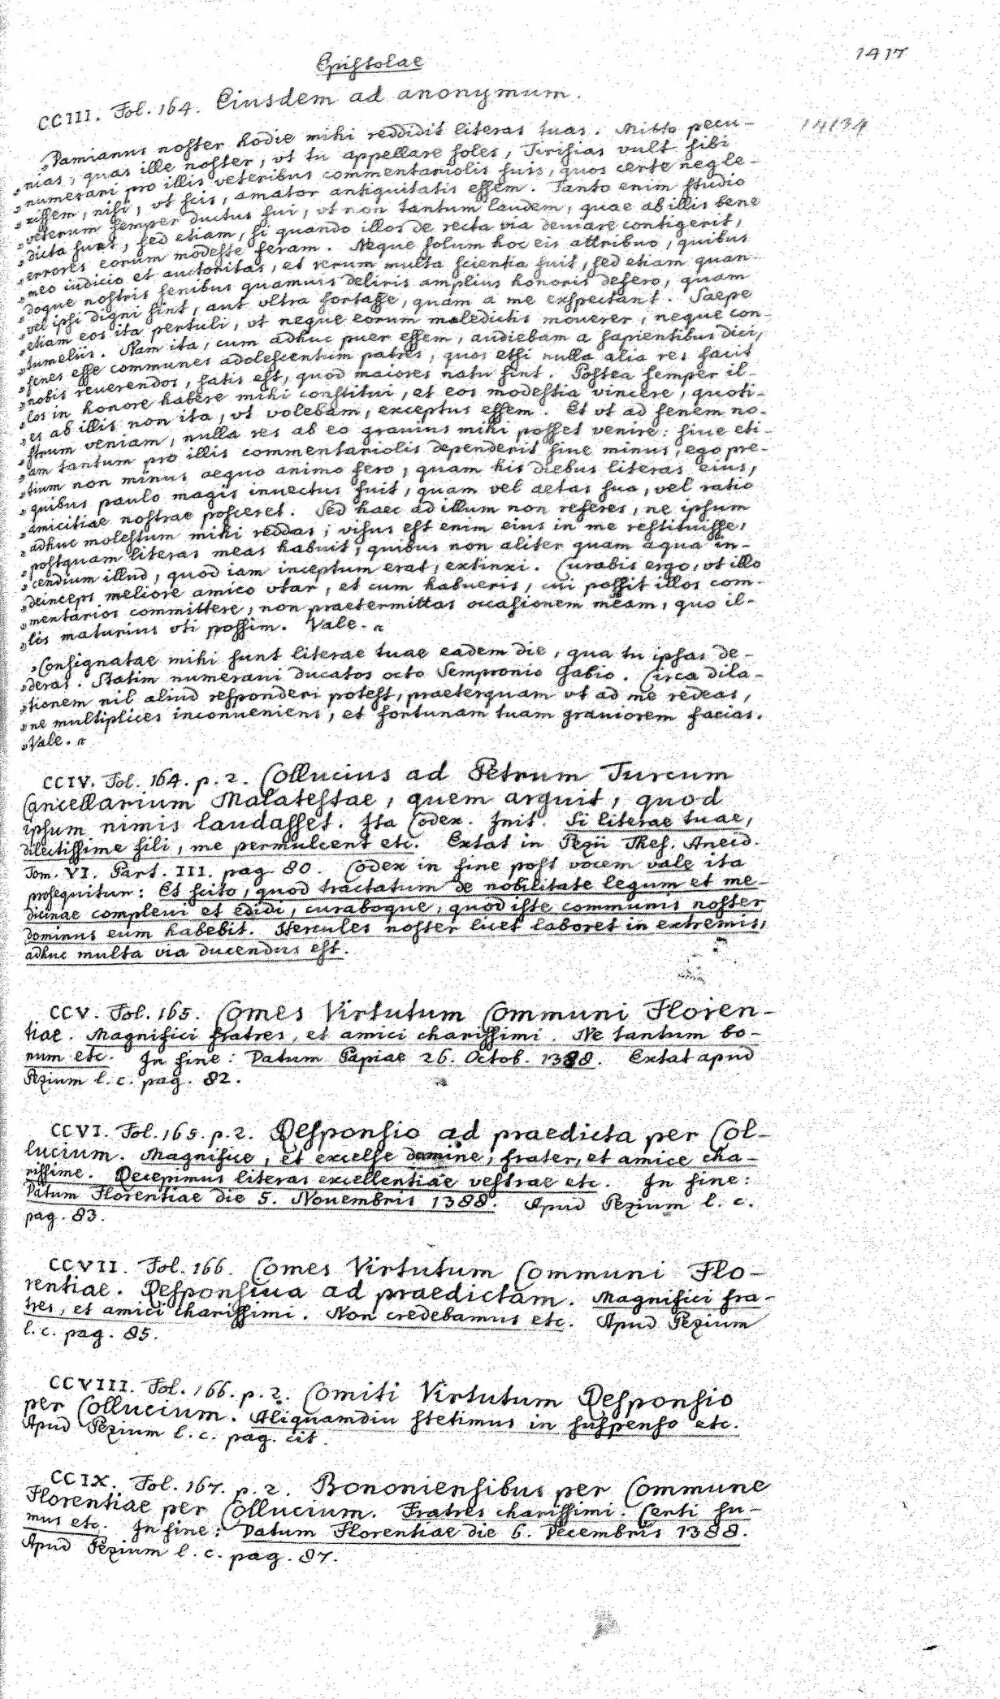 Epistolae
1417
CCIII. Fol. 164. Eiusdem ad anonymum.
14134
„Damianus noster hodie mihi reddidit literas tuas. Mitto pecu-
„nias, quas ille noster, vt tu appellare soles, Tirisias vult sibi
„numerari pro illis veteribus commentariolis suis, quos certe negle-
„xissem, nisi, vt scis, amator antiquitatis essem. Tanto enim studio
„veterum semper ductus fui, vt non tantum laudem, quae ab illis bene
„dicta sunt, sed etiam, si quando illos de recta via deuiare contigerit,
„errores eorum modeste feram. Neque solum hoc eis attribuo, quibus
„meo iudicio et auctoritas, et rerum multa scientia fuit, sed etiam quan-
„doque nostris senibus quamuis deliris amplius honoris defero, quam
„vel ipsi digni sint, aut vltra fortasse, quam a me exspectant. Saepe
„etiam eos ita pertuli, vt neque eorum maledictis mouerer, neque con-
„tumeliis. Nam ita, cum adhuc puer essem, audiebam a sapientibus dici,
„senes esse communes adolescentum patres, quos etsi nulla alia res facit
„nobis reuerendos, satis est, quod maiores natu sint. Postea semper il-
„los in honore habere mihi constitui, et eos modestia vincere, quoti-
„es ab illis non ita, vt volebam, exceptus essem. Et vt ad senem no-
„strum veniam, nulla res ab eo grauius mihi posset venire: siue eti-
„am tantum pro illis commentariolis dependerit siue minus, ego pre-
„tium non minus aequo animo fero, quam his diebus literas eius,
„quibus paulo magis inuectus fuit, quam vel aetas sua, vel ratio
„amicitiae nostrae posceret. Sed haec ad illum non referes, ne ipsum
„adhuc molestum mihi reddas; visus est enim eius in me restituisse,
„postquam literas meas habuit, quibus non aliter quam aqua in-
„cendium illud, quod iam inceptum erat, extinxi. Curabis ergo, vt illo
„deinceps meliore amico vtar, et cum habueris, cui possit illos com-
„mentarios committere, non praetermittas occasionem meam, quo il-
„lis maturius vti possim. Vale.„
„Consignatae mihi sunt literae tuae eadem die, qua tu ipsas de-
„deras. Statim numerani ducatos octo Sempronio Gabio. Circa dila-
„tionem nil aliud responderi potest, praeterquam vt ad me redeas,
„ne multiplices inconueniens, et fortunam tuam grauiorem facias.
„Vale.„
CCIV. Fol. 164. p. 2. Collucius ad Petrum Turcum
Cancellarium Malatestae, quem arguit, quod
ipsum nimis laudasset. Ita Codex. Init. Si literae tuae,
dilectissime fili, me permulcent etc. Extat in Pezii Thes. Anecd.
Tom. VI. Part. III. pag. 80. Codex in fine post vocem vale ita
prosequitur: Et scito, quod tractatum de nobilitate legum et me-
dicinae compleui et edidi, curaboque, quod iste communis noster
dominus eum habebit. Hercules noster licet laboret in extremis,
adhuc multa via ducendus est.
CCV. Fol. 165. Comes Virtutum Communi Floren-
tiae. Magnifici fratres, et amici charissimi. Ne tantum bo-
num etc. In fine: Datum Papiae 26. Octob. 1388. Extat apud
Pezium l. c. pag. 82.
CCVI. Fol. 165. p. 2. Responsio ad praedicta per Col-
lucium. Magnifice, et excelse domine, frater, et amice cha-
rissime. Recepimus literas excellentiae vestrae etc. In fine:
Datum Florentiae die 5. Nouembris 1388. Apud Pezium l. c.
pag. 83.
CCVII. Fol. 166. Comes Virtutum Communi Flo-
rentiae. Responsiua ad praedictam. Magnifici fra-
tres, et amici charissimi. Non credebamus etc. Apud Pezium
l. c. pag. 85.
CCVIII. Fol. 166. p. 2. Comiti Virtutum Responsio
per Collucium. Aliquamdiu stetimus in suspenso etc.
Apud Pezium l. c. pag. cit.
CCIX. Fol. 167. p. 2. Bononiensibus per Commune
Florentiae per Collucium. Fratres charissimi. Centi su-
mus etc. In fine: Datum Florentiae die 6. Decembris 1388.
Apud Pezium l. c. pag. 87.